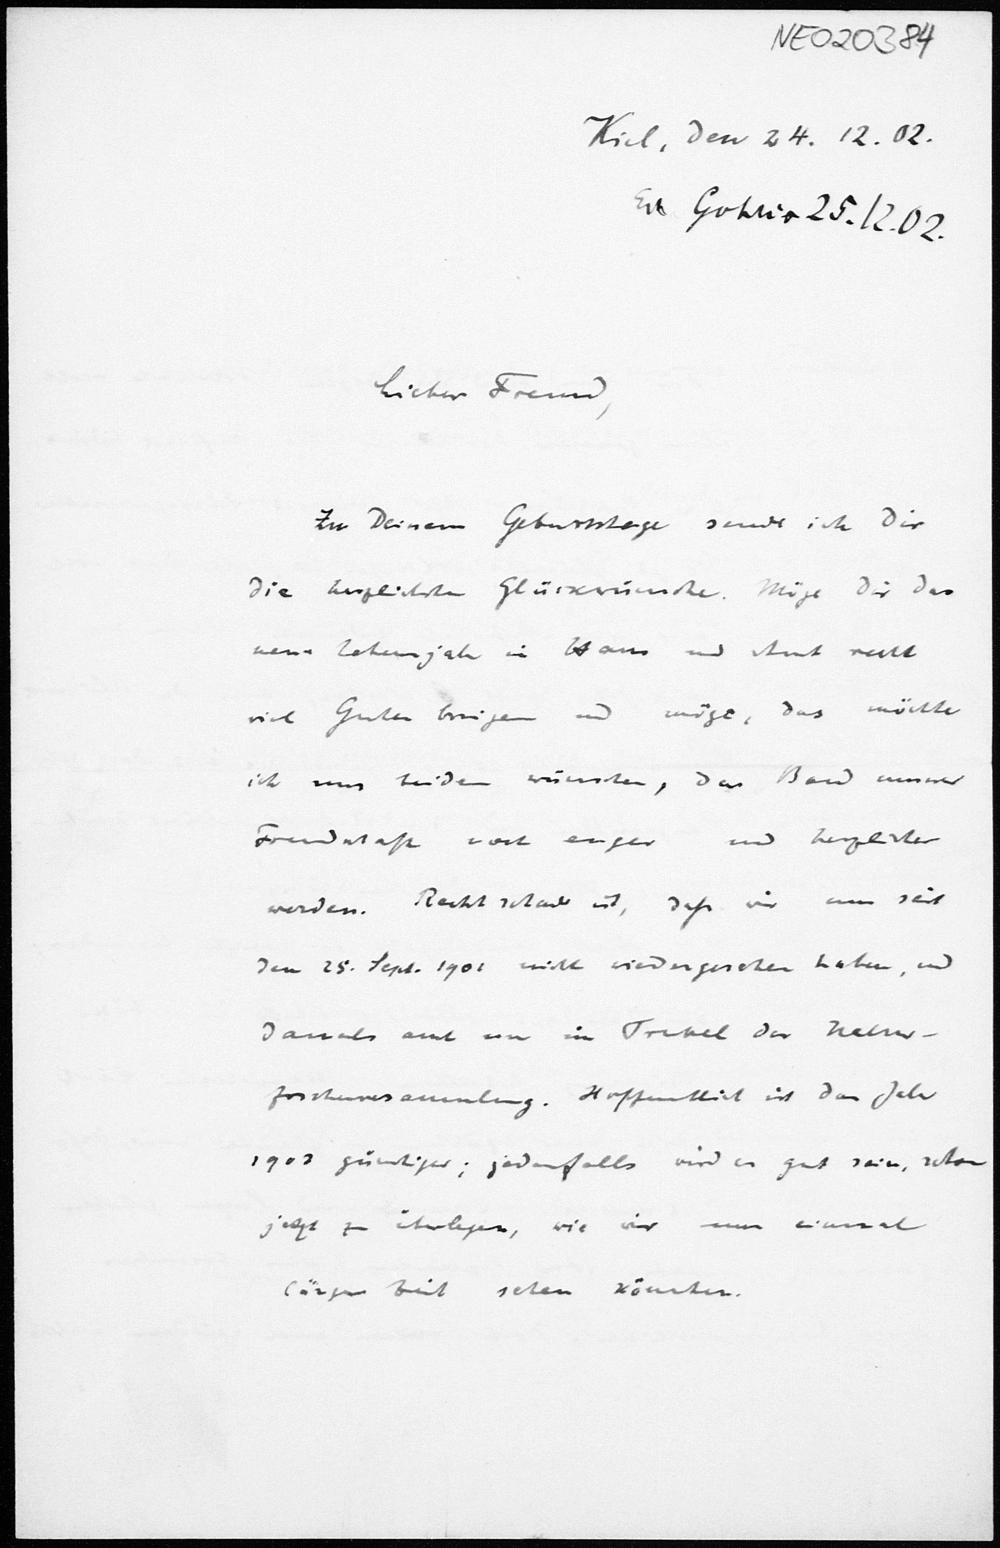 NE020384
Kiel, den 24. 12. 02.
Gohlis 25.12.02.
Lieber Freund,
Zu Deinem Geburtstage sende ich Dir
die herzlichsten Glückwünsche. Möge Dir das
neue Lebensjahr in Haus und Amt recht
viel Gutes bringen und möge, das möchte
ich uns beiden wünschen, das Band unserer
Freundschaft noch enger und herzlicher
werden. Recht schade ist, daß wir uns seit
dem 25. Sept. 1901 nicht wiedergesehen haben, und
damals auch nur im Trubel der Natur-
forscherversammlung. Hoffentlich ist das Jahr
1903 günstiger; jedenfalls wird es gut sein, schon
jetzt zu überlegen, wie wir uns einmal
längere Zeit sehen könnten.